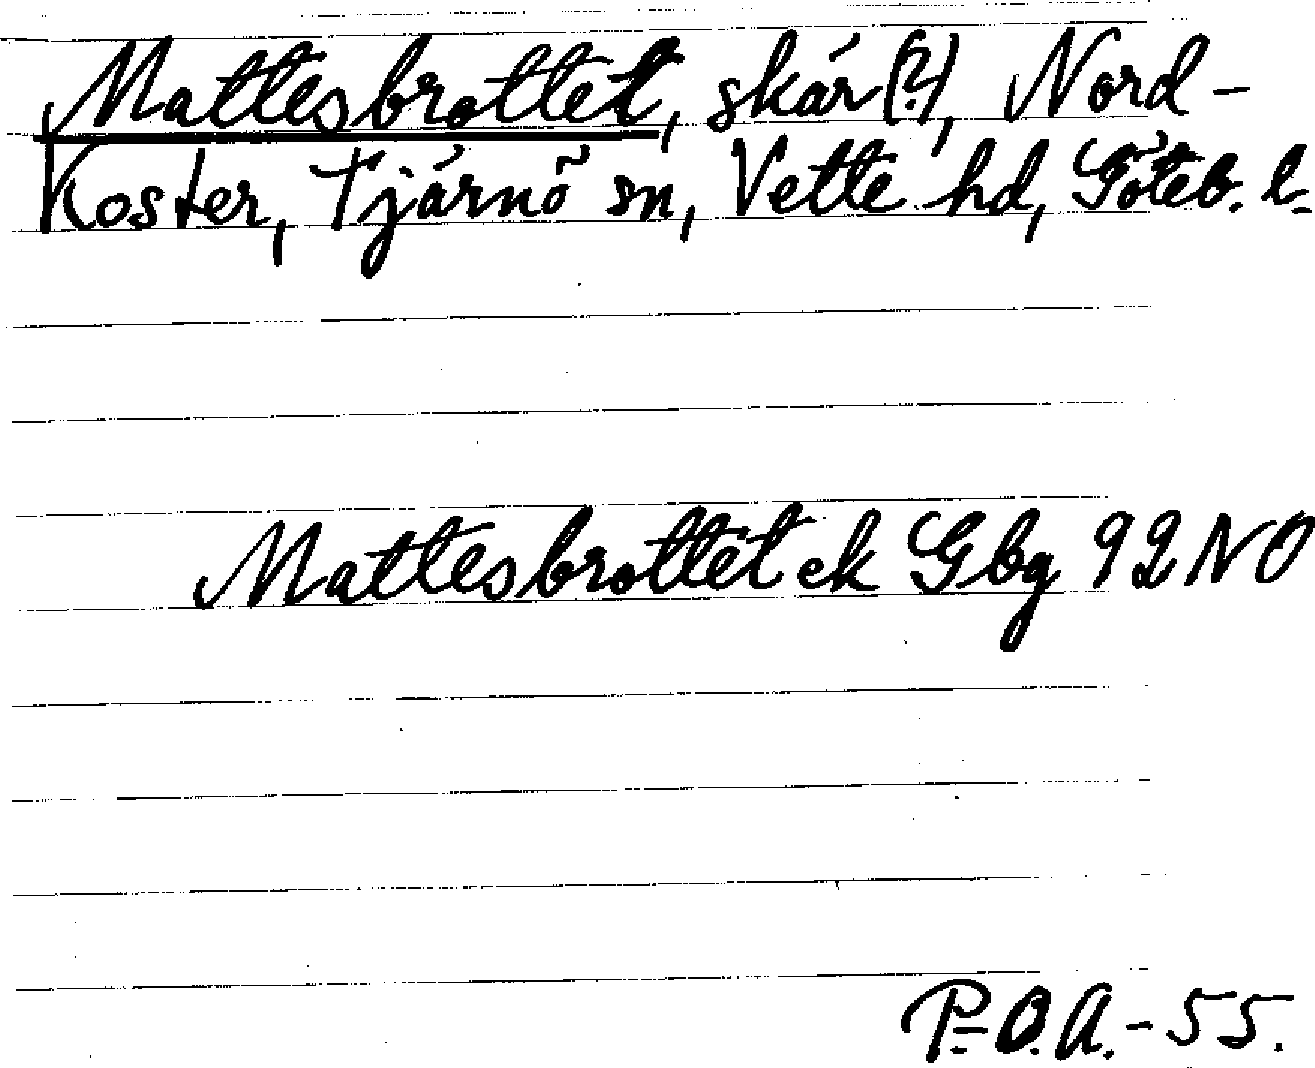 Mattesbrottet, skär(?), Nord-
Koster, Tjärnö sn, Vette hd, Göteb. l.
Mattesbrottet ek Gbg 92 NO
P-O.A.-55.